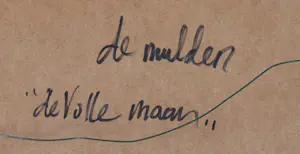 de mulden
"de Volle maan"